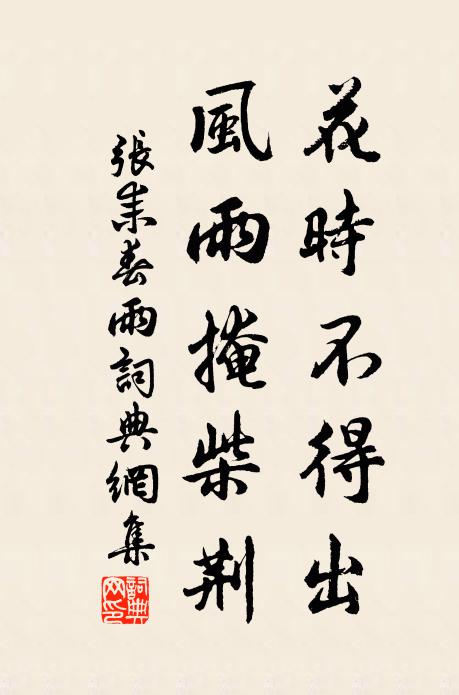 花時不得出
風雨掩柴荆
張耒春雨詞典網集
詞典网印